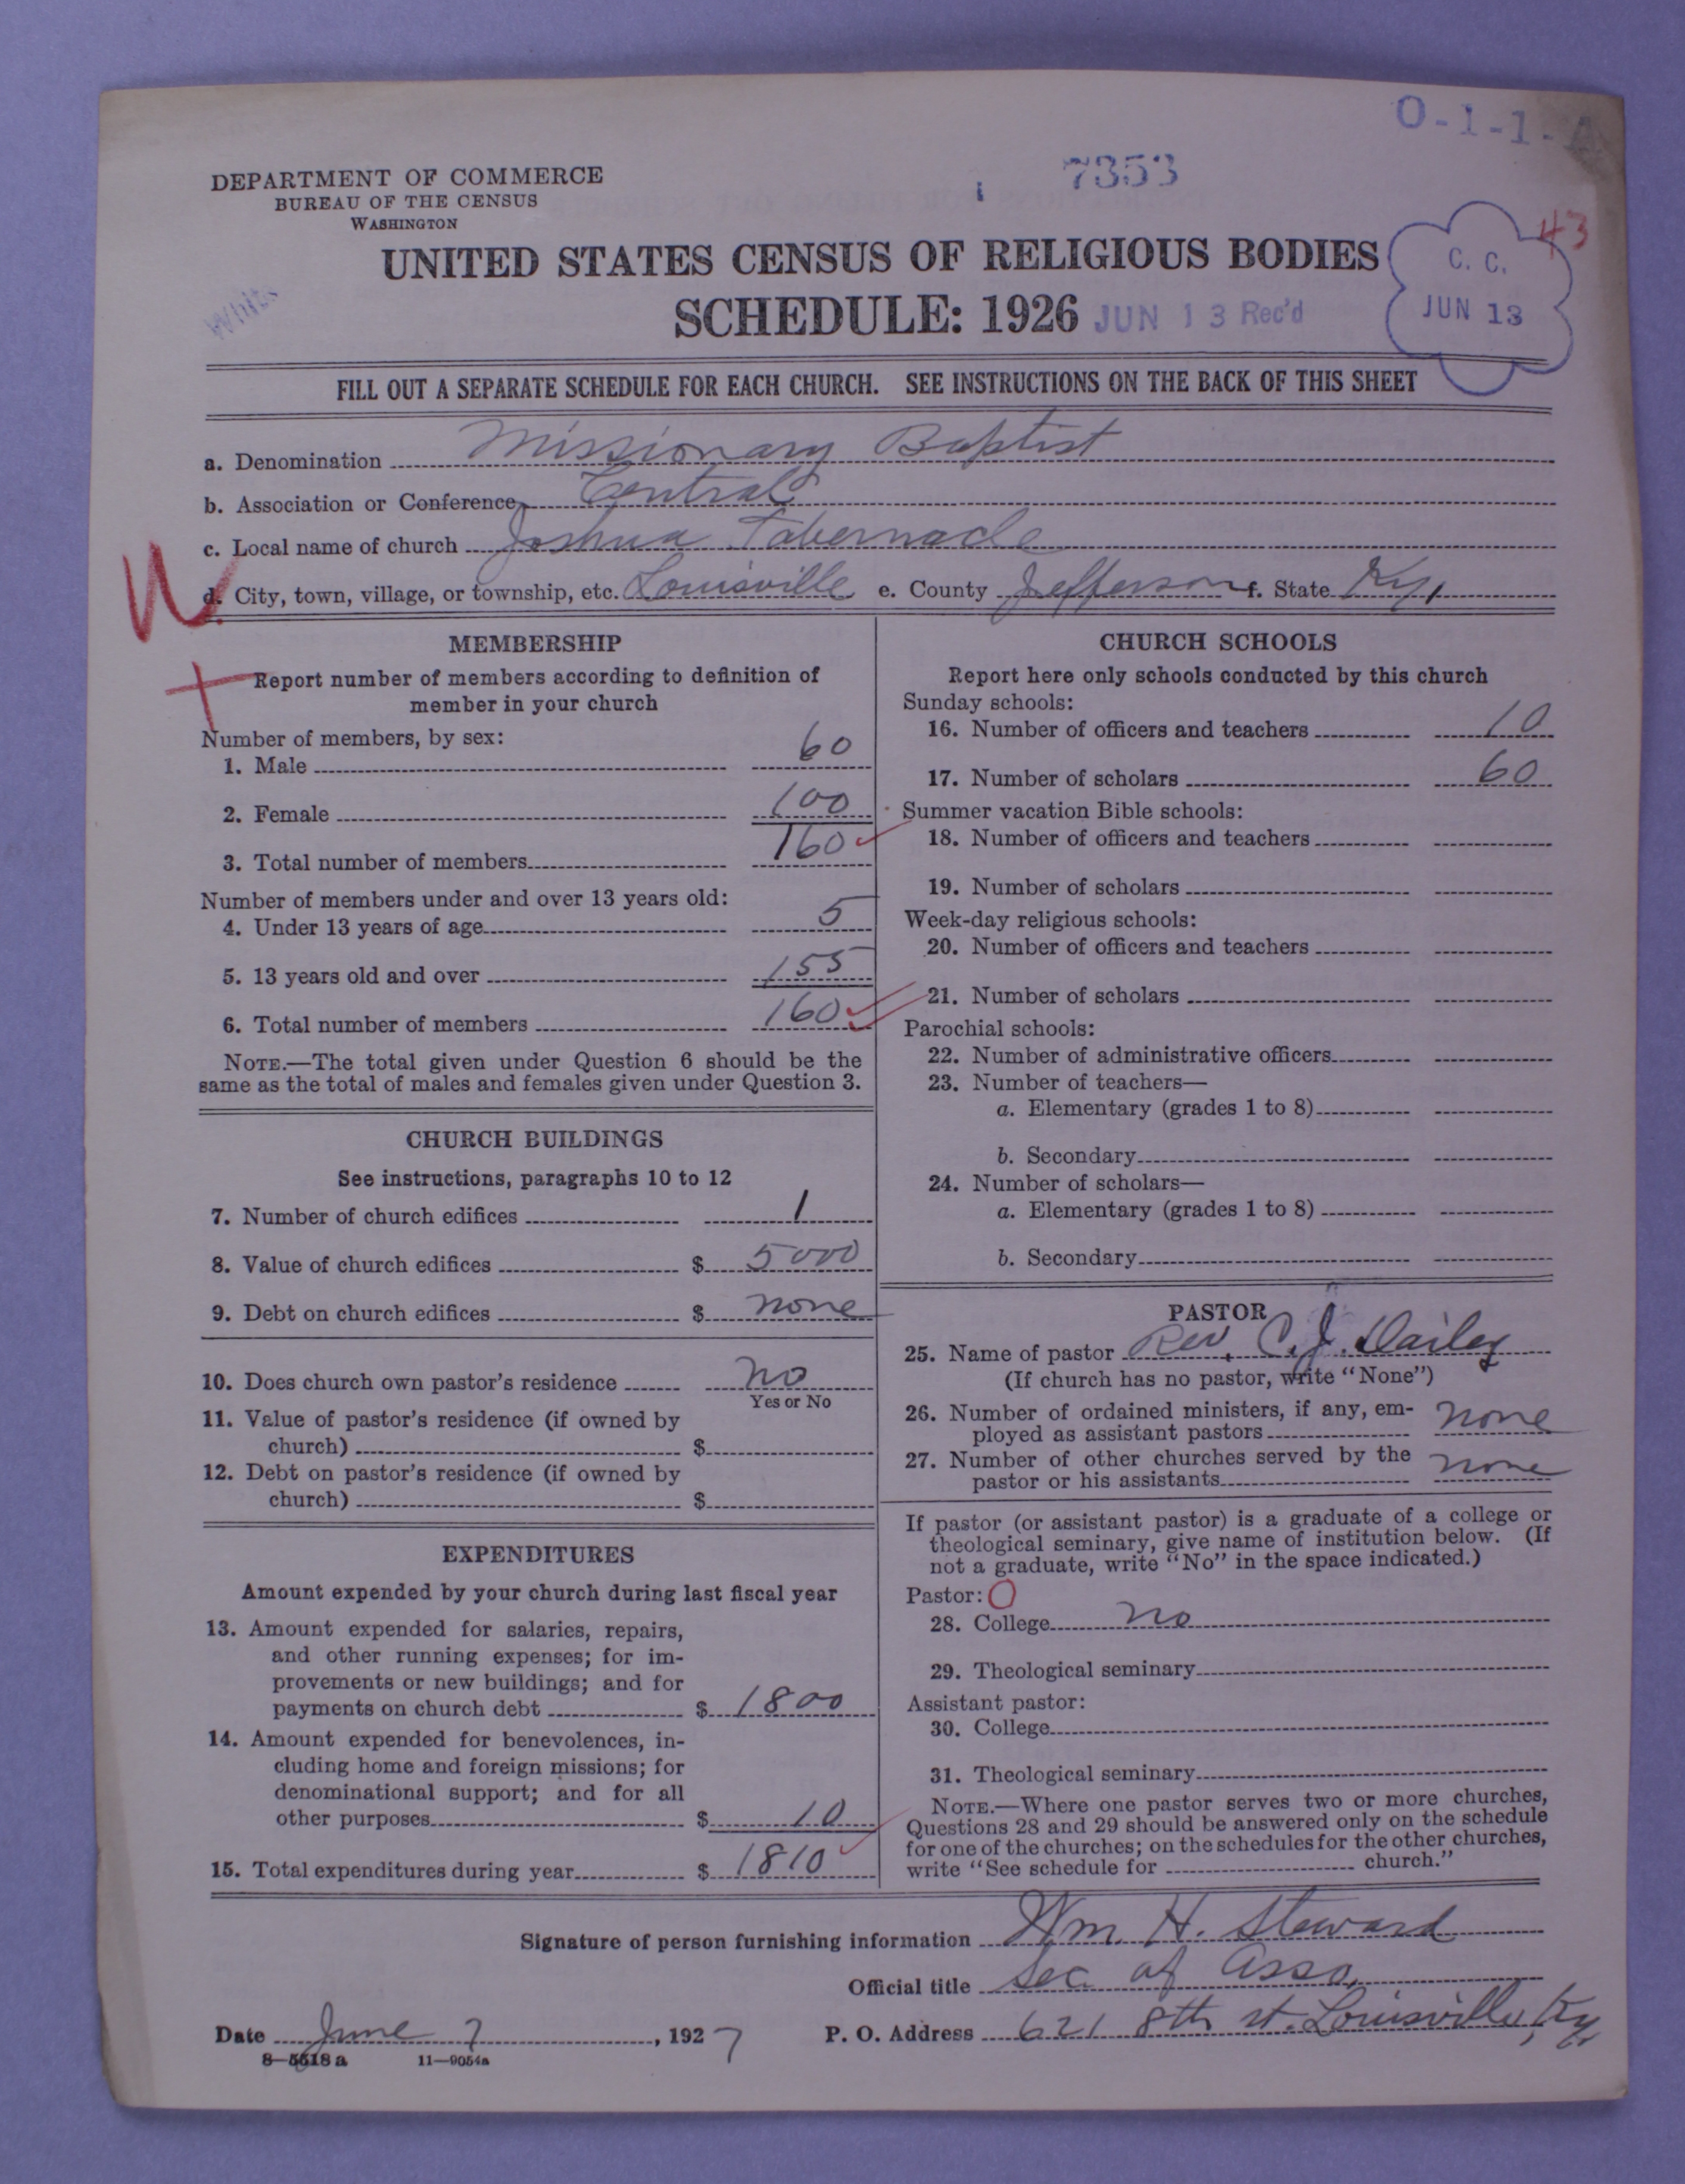 O-1-1-A
DEPARTMENT OF COMMERCE
BUREAU OF THE CENSUS
WASHINGTON
7353
43
UNITED STATES CENSUS OF RELIGIOUS BODIES
SCHEDULE: 1926
JUN 13 Rec'd
C. C.
JUN 13
FILL OUT A SEPARATE SCHEDULE FOR EACH CHURCH. SEE INSTRUCTIONS ON THE BACK OF THIS SHEET
a. Denomination Missionary Baptist
b. Association or Conference Central
c. Local name of church Joshua Tabernacle
d. City, town, village, or township, etc. Louisville e. County Jefferson f. State Ky,
MEMBERSHIP
Report number of members according to definition of
member in your church
Number of members, by sex:
1. Male 60
2. Female 100
3. Total number of members 160
Number of members under and over 13 years old:
4. Under 13 years of age 5
5. 13 years old and over 155
6. Total number of members 160
NOTE.—The total given under Question 6 should be the
same as the total of males and females given under Question 3.
CHURCH BUILDINGS
See instructions, paragraphs 10 to 12
7. Number of church edifices 1
8. Value of church edifices $ 5000
9. Debt on church edifices $ none
10. Does church own pastor's residence no
Yes or No
11. Value of pastor's residence (if owned by
church) $
12. Debt on pastor's residence (if owned by
church) $
EXPENDITURES
Amount expended by your church during last fiscal year
13. Amount expended for salaries, repairs,
and other running expenses; for im-
provements or new buildings; and for
payments on church debt $ 1800
14. Amount expended for benevolences, in-
cluding home and foreign missions; for
denominational support; and for all
other purposes $ 10
15. Total expenditures during year $ 1810
CHURCH SCHOOLS
Report here only schools conducted by this church
Sunday schools:
16. Number of officers and teachers 10
17. Number of scholars 60
Summer vacation Bible schools:
18. Number of officers and teachers
19. Number of scholars
Week-day religious schools:
20. Number of officers and teachers
21. Number of scholars
Parochial schools:
22. Number of administrative officers
23. Number of teachers—
a. Elementary (grades 1 to 8)
b. Secondary
24. Number of scholars—
a. Elementary (grades 1 to 8)
b. Secondary
PASTOR
25. Name of pastor Rev. C. J. Dailey
(If church has no pastor, write "None")
26. Number of ordained ministers, if any, em-
ployed as assistant pastors none
27. Number of other churches served by the
pastor or his assistants none
If pastor (or assistant pastor) is a graduate of a college or
theological seminary, give name of institution below. (If
not a graduate, write "No" in the space indicated.)
Pastor: O
28. College no
29. Theological seminary
Assistant pastor:
30. College
31. Theological seminary
NOTE.—Where one pastor serves two or more churches,
Questions 28 and 29 should be answered only on the schedule
for one of the churches; on the schedules for the other churches,
write "See schedule for church."
Signature of person furnishing information Wm. H. Steward
Official title Sec of Asso.
Date June 7, 1927 P. O. Address 621 8th st. Louisville, Ky
8—5518 a 11—9054a